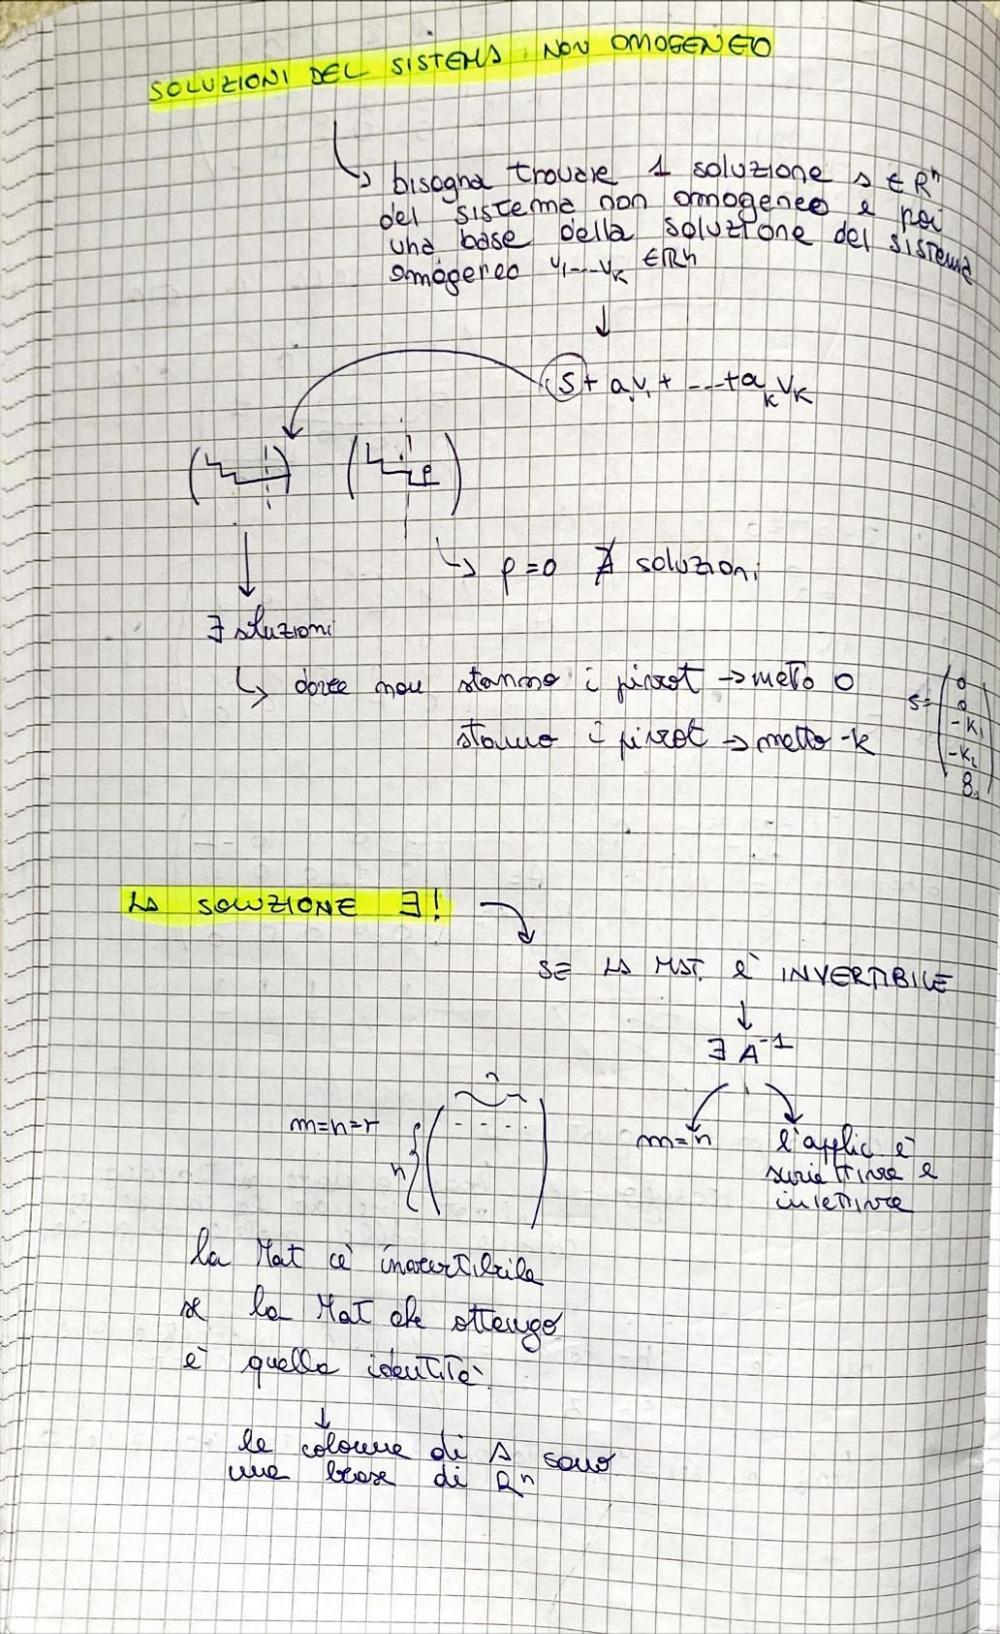 SOLUZIONI DEL SISTEMA NON OMOGENEO
bisogna trovare 1 soluzione s ∈ Rⁿ
del sistema non omogeneo e poi
una base della soluzione del sistema
omogeneo v₁...vₖ ∈ Rⁿ
↓
s + a₁v₁ + ... + aₖvₖ
p
↳ p=0 ∄ soluzioni
∃ soluzioni
↳ dove non stanno i pivot → metto 0
stanno i pivot → metto -k
s= ( 0
0
-k₁
-k₂
LA SOLUZIONE ∃!
SE LA MAT. È INVERTIBILE
↓
∃ A⁻¹
n
m=n=r
n
m=n
l'applic è
suriettiva e
iniettiva
la Mat è invertibile
se la Mat che ottengo
è quella identità
↓
le colonne di A sono
una base di Rⁿ